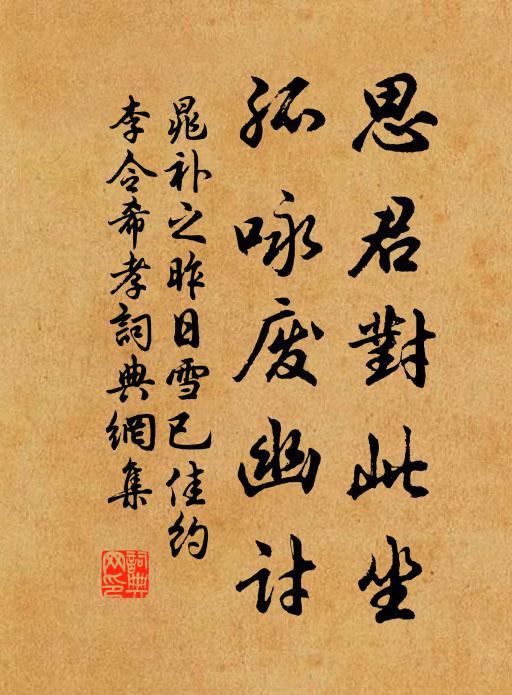 思君對此坐
孤咏废幽討
晁补之昨日雪已佳约
李令希孝詞典網集
詞典网印